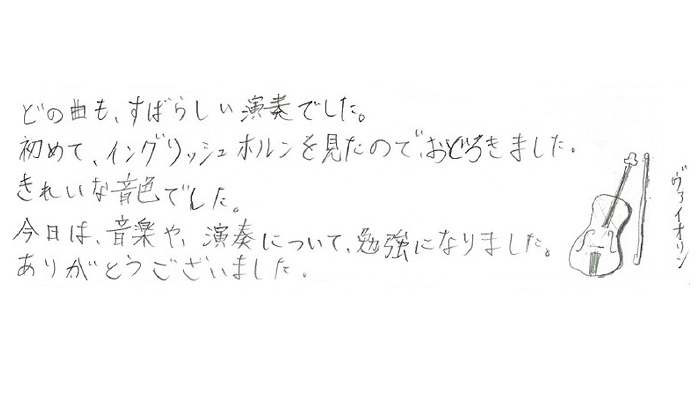 どの曲も、すばらしい演奏でした。
初めて、イングリッシュホルンを見たので、おどろきました。
きれいな音色でした。
今日は、音楽や、演奏について、勉強になりました。
ありがとうございました。
ヴァイオリン